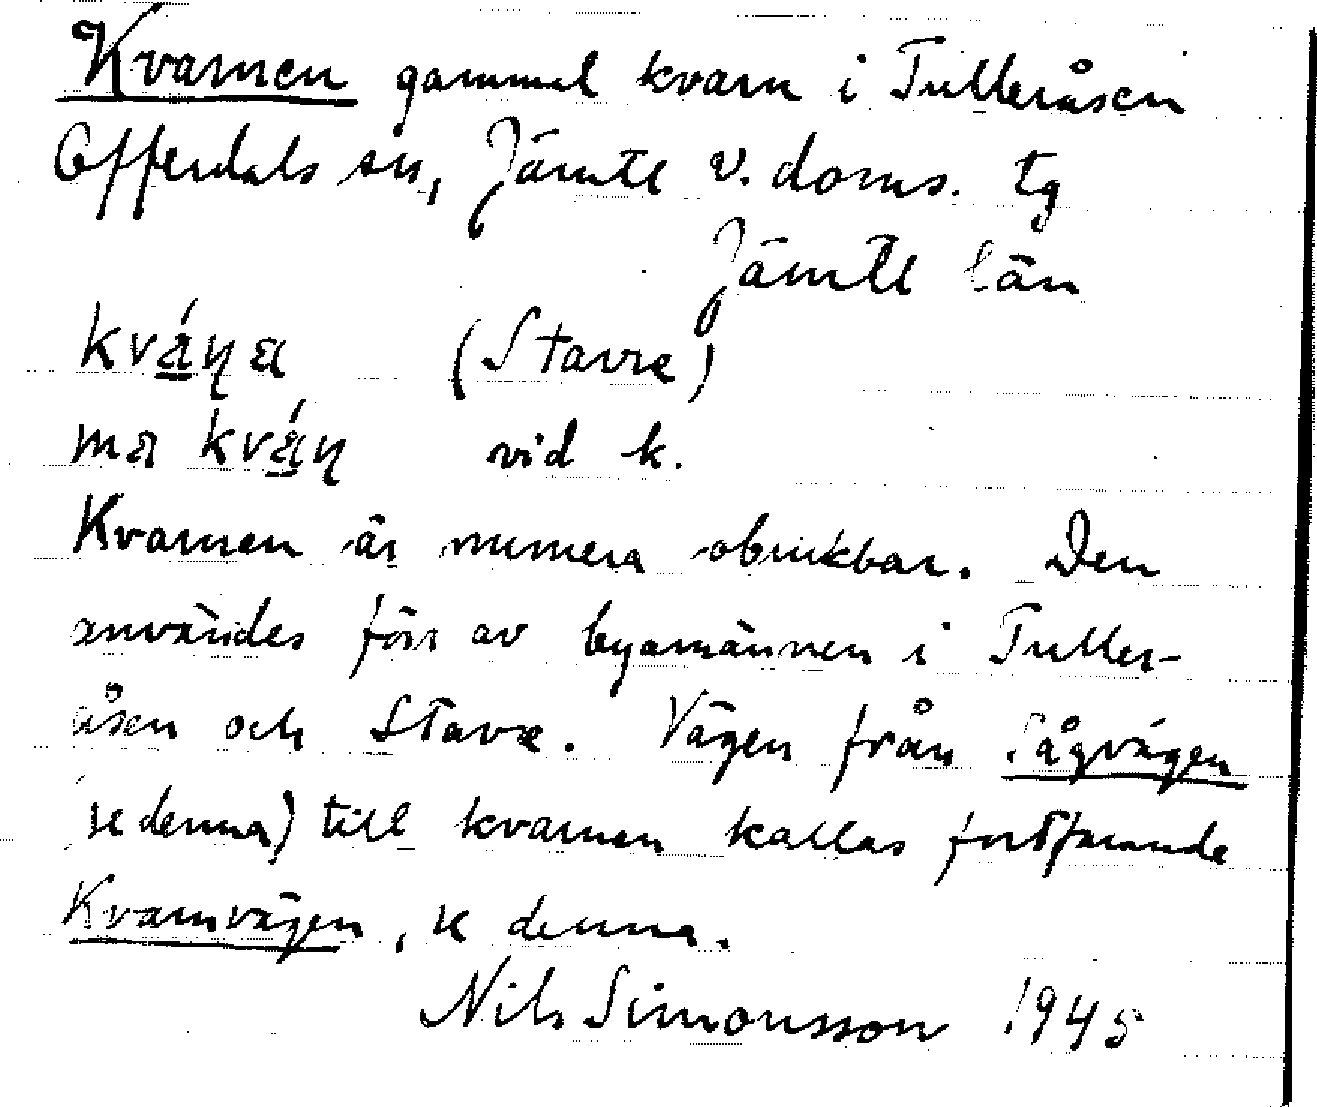 Kvarnen gammal kvarn i Tulleråsen
Offerdals sn, Jämtl v. doms. tg
Jämtl län
kvá̱ŋa (Stavre)
ma kvá̱ŋ vid k.
Kvarnen är numera obrukbar. Den
användes förr av byamännen i Tuller-
åsen och Stavre. Vägen från Sågvägen
se denna) till kvarnen kallas fortfarande
Kvarnvägen, se denna.
Nils Simonsson 1945